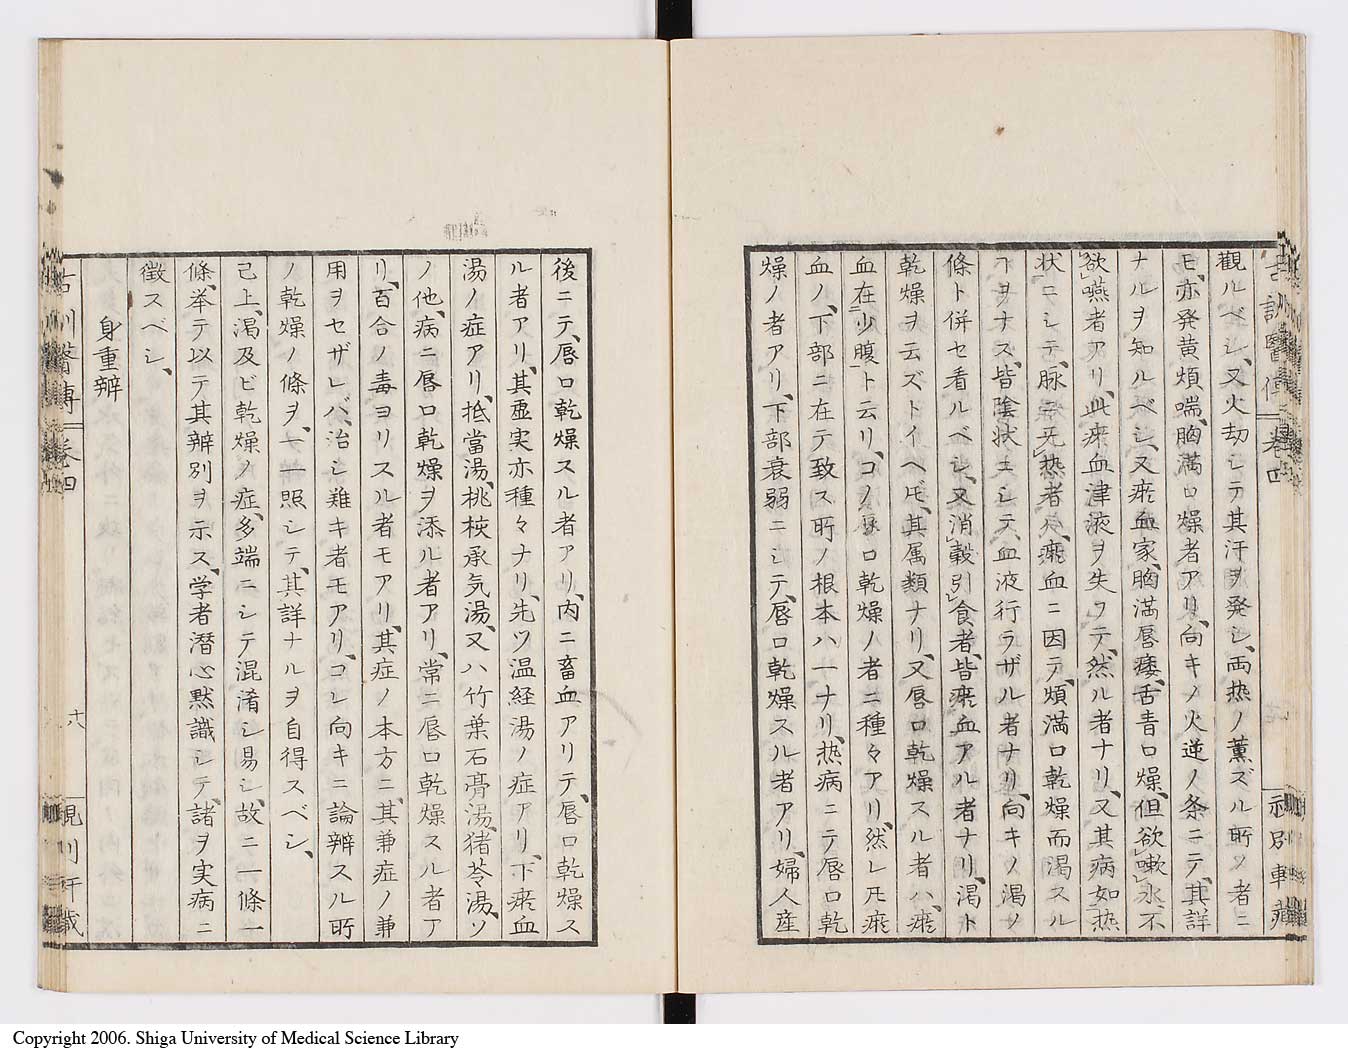 觀ルベシ、又火劫シテ其汗ヲ発シ、両熱ノ薫ズル所ノ者ニ
モ、亦発黄煩喘、胸満口燥者アリ、向キノ火逆ノ条ニテ、其詳
ナルヲ知ルベシ、又瘀血家、胸満唇痿、舌青口燥、但欲嗽水、不
欲嚥者アリ、此瘀血津液ヲ失フテ、然ル者ナリ、又其病如热
状ニシテ、脉无热者ハ、瘀血ニ因テ、煩満口乾燥而渴スル
ヿヲナス、皆陰状ニシテ、血液行ラザル者ナリ、向キノ渴ノ
條ト併セ看ルベシ、又消穀引食者、皆瘀血アル者ナリ、渴ト
乾燥ヲ云ズトイヘ𪜈、其属類ナリ、又唇口乾燥スル者ハ、瘀
血在少腹ト云リ、コノ唇口乾燥ノ者ニ種々アリ、然レ𪜈瘀
血ノ、下部ニ在テ致ス所ノ根本ハ一ナリ、热病ニテ唇口乾
燥ノ者アリ、下部衰弱ニシテ、唇口乾燥スル者アリ、婦人産
後ニテ、唇口乾燥スル者アリ、内ニ畜血アリテ、唇口乾燥ス
ル者アリ、其虚実亦種々ナリ、先ツ温経湯ノ症アリ、下瘀血
湯ノ症アリ、抵當湯、桃核承気湯、又ハ竹葉石膏湯、猪苓湯、ソ
ノ他、病ニ唇口乾燥ヲ添ル者アリ、常ニ唇口乾燥スル者ア
リ、百合ノ毒ヨリスル者モアリ、其症ノ本方ニ、其兼症ノ兼
用ヲセザレバ、治シ難キ者モアリ、コレ向キニ論辨スル所
ノ乾燥ノ條ヲ、一一照シテ、其詳ナルヲ自得スベシ、
已上、渴及ビ乾燥ノ症、多端ニシテ混淆シ易シ、故ニ一條一
條、挙テ以テ其辨別ヲ示ス、学者潜心黙識シテ、諸ヲ実病ニ
徴スベシ、
身重辨
古訓醫傳 卷四
Copyright 2006. Shiga University of Medical Science Library